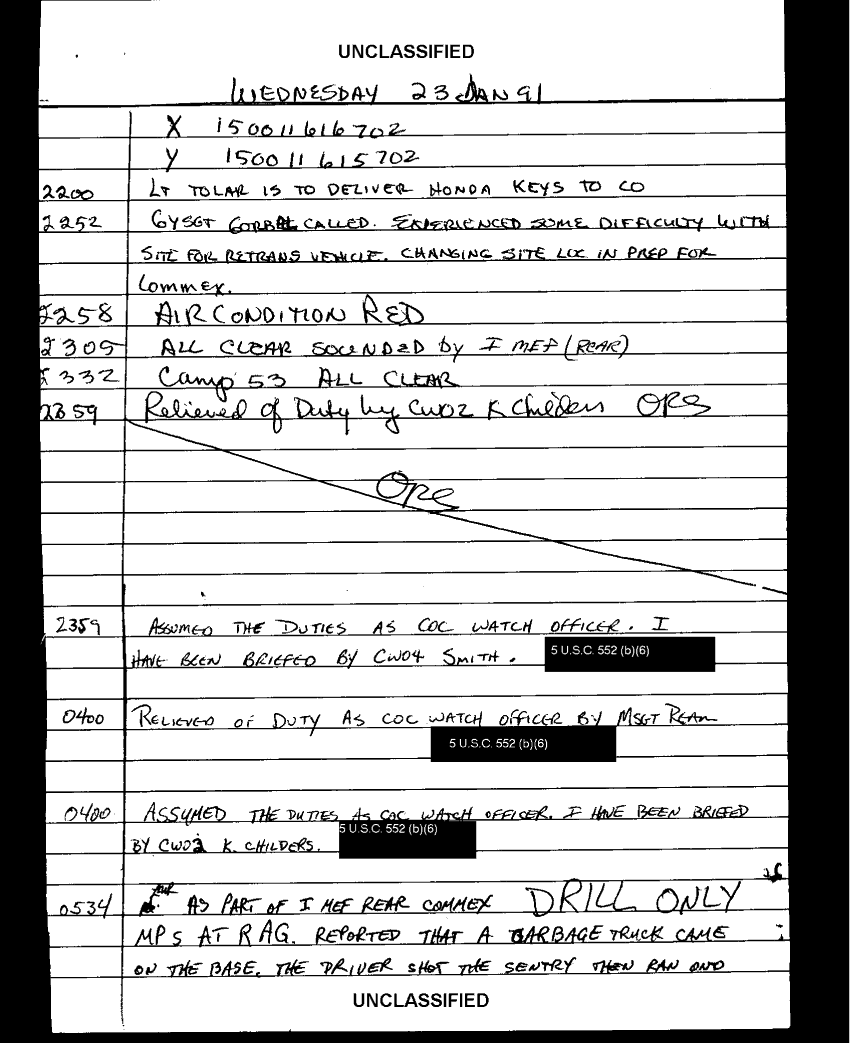 UNCLASSIFIED
WEDNESDAY 23 JAN 91
X 150011616702
Y 150011615702
2200 LT TOLAR IS TO DELIVER HONDA KEYS TO CO
2252 GYSGT CALLED. EXPERIENCED SOME DIFFICULTY WITH
SITE FOR RETRANS VEHICLE. CHANGING SITE LOC IN PREP FOR
COMMEX.
2258 AIR CONDITION RED
2305 ALL CLEAR SOUNDED by I MEF (REAR)
2332 Camp 53 ALL CLEAR
2359 Relieved of Duty by CWO2 K Childers
2359 ASSUMED THE DUTIES AS COC WATCH OFFICER. I
HAVE BEEN BRIEFED BY CWO4 SMITH. 5 U.S.C. 552 (b)(6)
0400 RELIEVED OF DUTY AS COC WATCH OFFICER BY MSGT
5 U.S.C. 552 (b)(6)
0400 ASSUMED THE DUTIES AS COC WATCH OFFICER. I HAVE BEEN BRIEFED
BY CWO2 K. CHILDERS. 5 U.S.C. 552 (b)(6)
0534 AS PART OF I MEF REAR COMMEX DRILL ONLY
MPS AT RAG. REPORTED THAT A GARBAGE TRUCK CAME
ON THE BASE. THE DRIVER SHOT THE SENTRY THEN RAN
UNCLASSIFIED